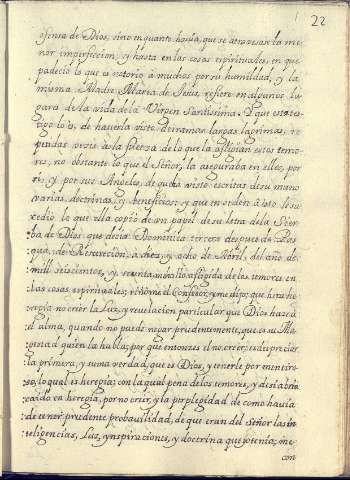 22
ofensa de Dios, sino en quanto hauia, que se atrauesase la me
nor imperfeccion, y hasta en las cosas espirituales, en que
padecio lo que es notorio a muchos por su humildad, y la
misma Madre Maria de Jesus, refiere en algunos lu
gares de la vida de la Virgen Santissima. Y que este tes
tigo lo es, de hauerla visto derramar largas lagrimas, re
petidas veces de la fuerza de lo que la afligian estos temo
res, no obstante lo que el Señor, la aseguraba en ellos, por
si, y por sus Angeles, de que ha visto escritas de su mano
varias, doctrinas, y beneficios; y que en orden a esto le su
cedio lo que ella copio en un papel de su letra de la Sier
ba de Dios que dice la Dominica tercera despues de Pas
qua, de Resureccion, a diez, y ocho de Abril, del año de
mill seiscientos, y sesenta, me hallo afligida de los temores en
las cosas espirituales; el Confesor, y me dixo; que hera he
regia no creer la Luz, y reuelacion particular que Dios haze a
el alma, quando no puede negar prudentemente, que es su Ma
gestad quien la habla; por que entonzes el no creer; es despreciar
la primera, y suma verdad, que es Dios, y tenerle por mentiro
so, lo qual es heregia; con la qual pena de los temores, y de si abria
caido en heregia, por no creer, y la perplegidad de como hauia
de tener prudente probauilidad, de que eran del Señor las in
teligencias, luz, ynspiraciones, y doctrina que ponia; me
con